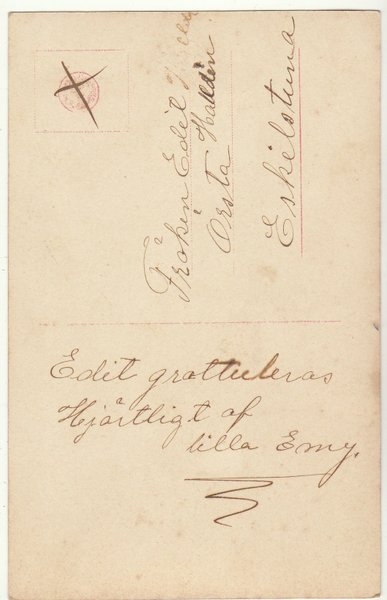 Fröken Edit
Örsta Halldin
Eskilstuna
Edit grattuleras
Hjärtligt af
lilla Emy.